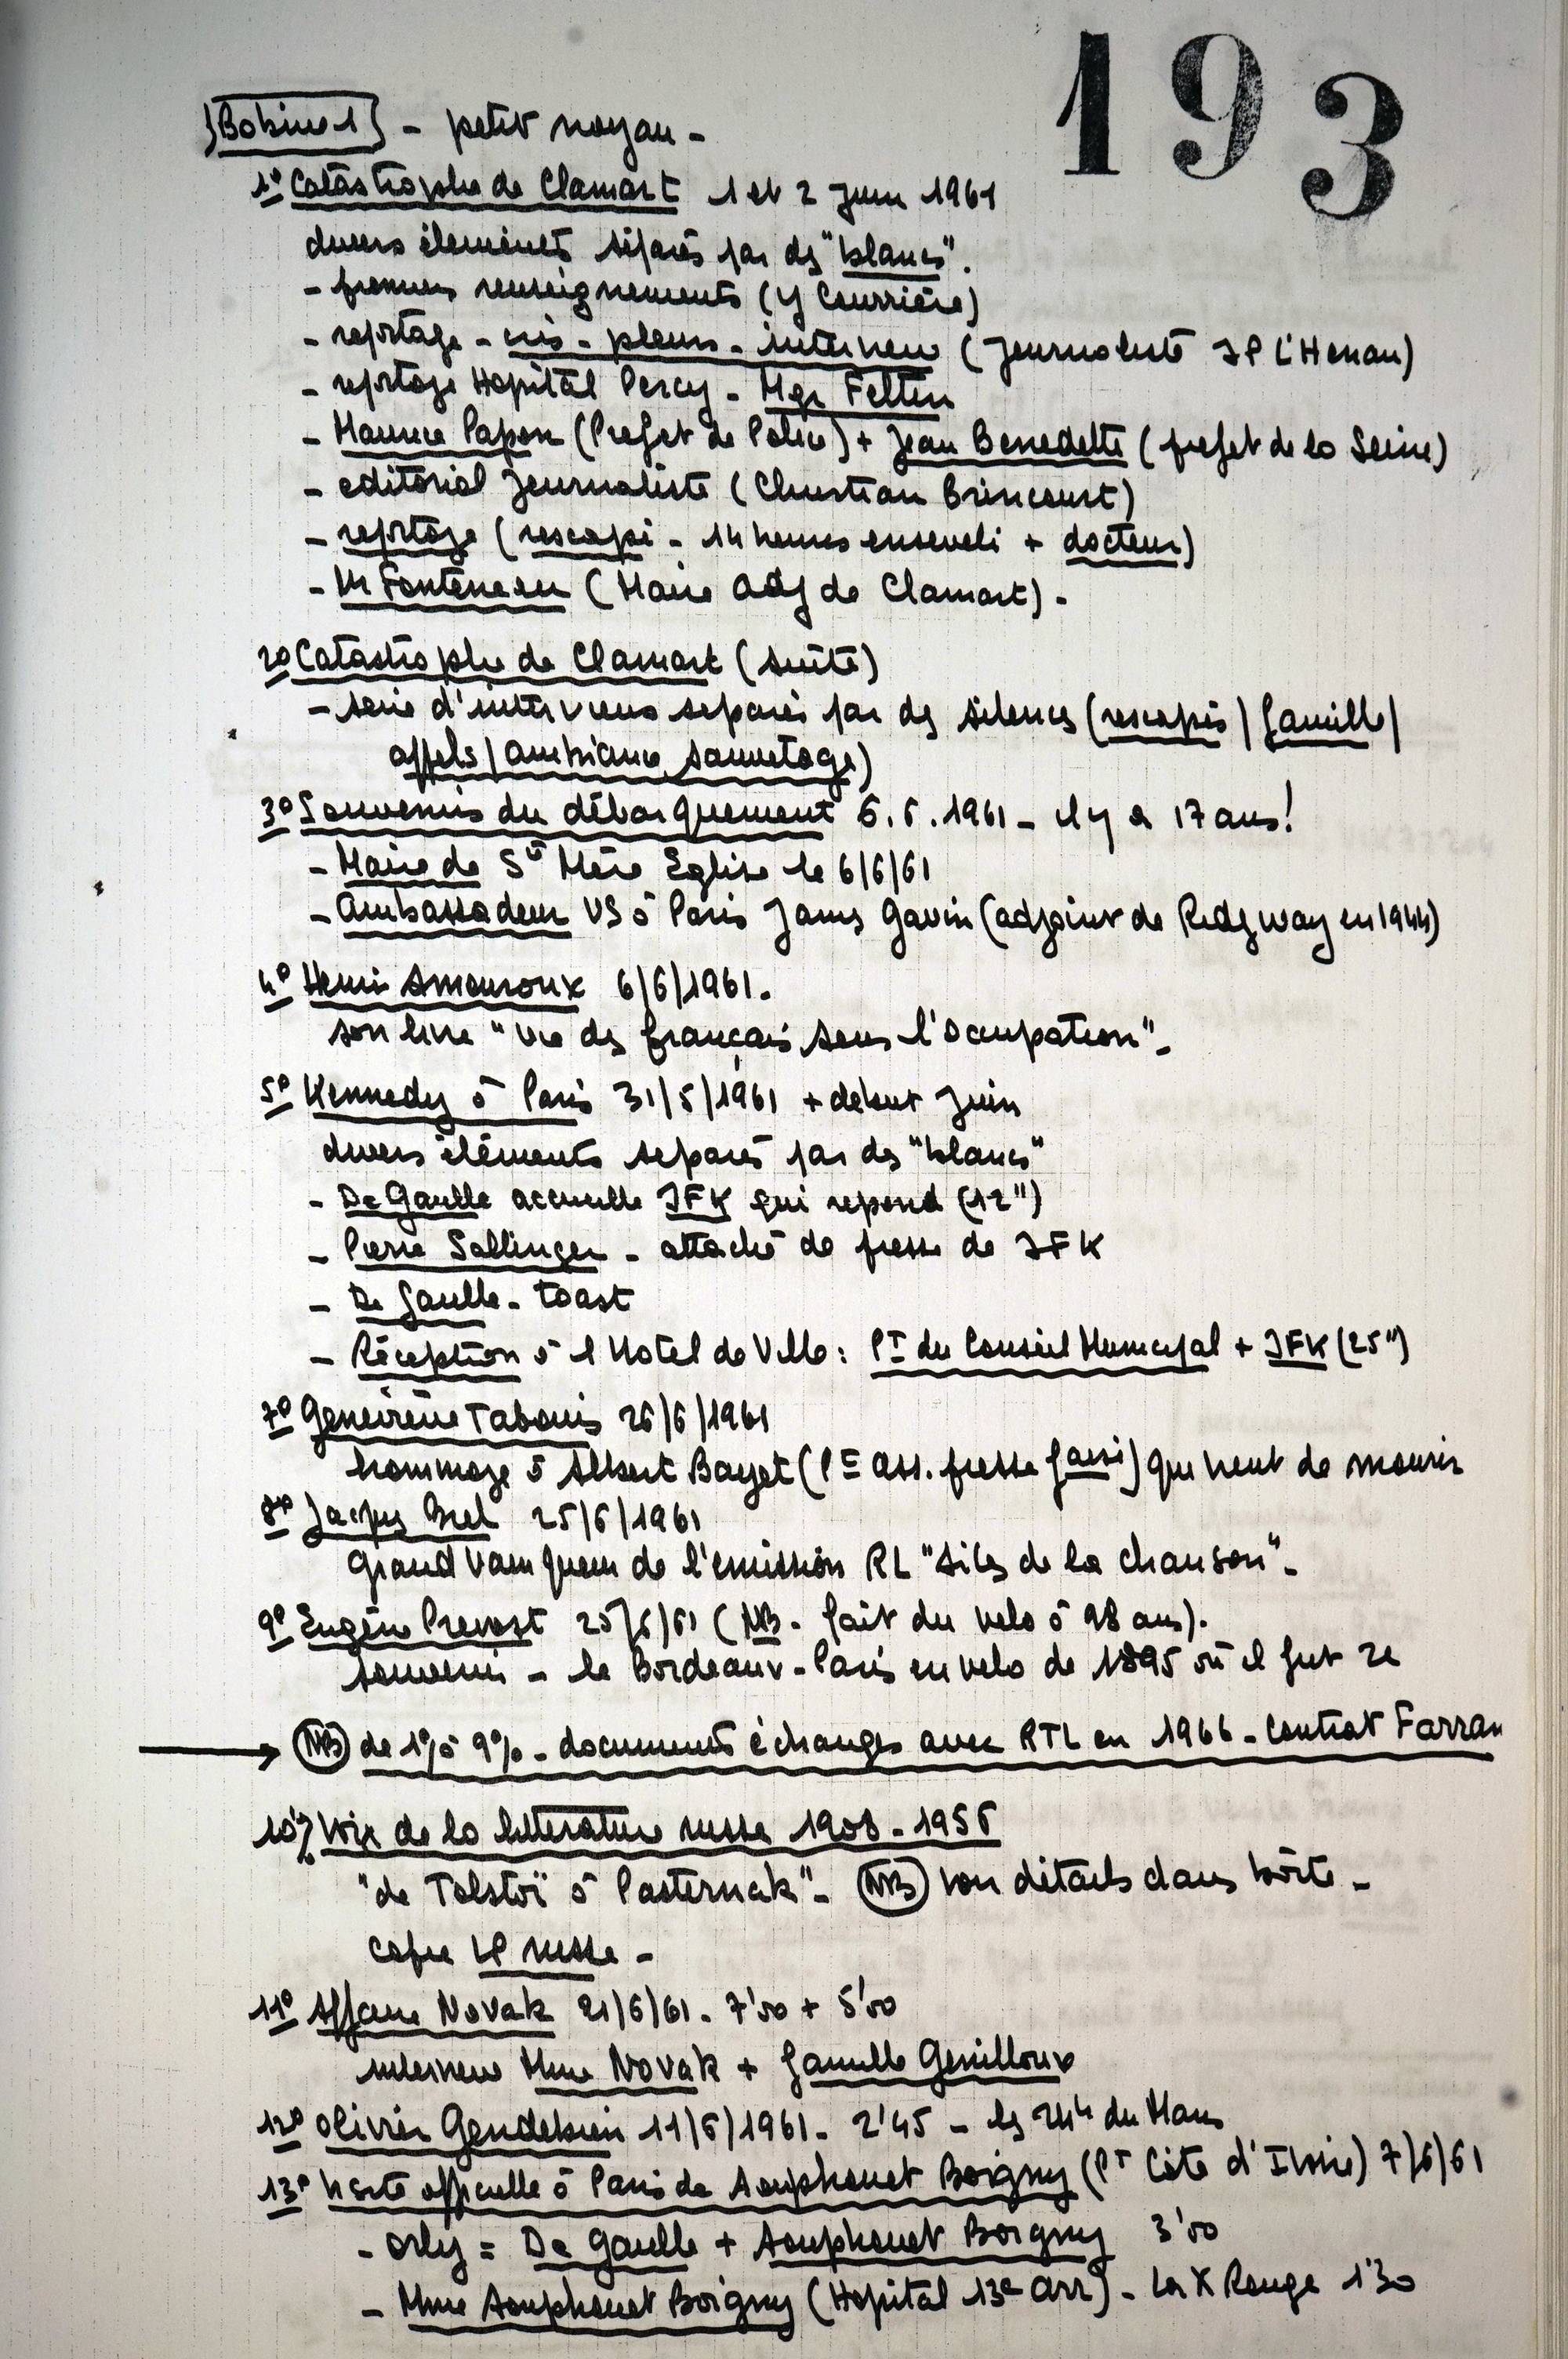 193
Bobine 1 - petit noyau -
1° Catastrophe de Clamart 1 et 2 Juin 1961
divers éléments séparés par des "blancs".
- premiers renseignements (Y Courrière)
- reportage - cris - pleurs - interview (Journaliste JP L'Henan)
- reportage Hopital Percy - Mgr Feltin
- Maurice Papon (Prefet de Police) + Jean Benedetti (prefet de la Seine)
- editorial Journaliste (Christian Brincourt)
- reportage (rescapé - 14 heures enseveli + docteur)
- M Fonteneau (Maire Adj de Clamart) -
2° Catastrophe de Clamart (suite)
- serie d'interviews separés par des silences (rescapés / famille /
appels / ambiance sauvetage)
3° Souvenirs du débarquement 6.6.1961 - il y a 17 ans!
- Maire de Ste Mère Eglise le 6/6/61
- Ambassadeur US à Paris James Gavin (adjoint de Ridgway en 1944)
4° Henri Amouroux 6/6/1961.
son livre "Vie des français sous l'occupation" -
5° Kennedy à Paris 31/5/1961 + debut Juin
divers éléments separés par des "blancs"
- De Gaulle accueille JFK qui repond (12")
- Pierre Sallinger - attaché de presse de JFK
- De Gaulle - toast
- Réception à l Hotel de Ville : Pt du Conseil Municipal + JFK (25")
7° Geneviève Tabouis 26/6/1961
hommage à Albert Bayet (Pt ass. presse fçaise) qui vient de mourir
8° Jacques Brel 25/6/1961
grand vainqueur de l'emission RL "Ailes de la chanson" -
9° Eugène Prevost 25/6/61 (NB - fait du velo à 98 ans).
souvenir - le Bordeaux-Paris en velo de 1895 où il fut 2e
→ NB de 1°/ à 9°/ - documents échanges avec RTL en 1966 - Contrat Farran
10°/ Voix de la litterature russe 1908 - 1956
"de Tolstoï à Pasternak" - NB voir détails dans boite -
copie LP russe -
11° Affaire Novak 21/6/61 - 7'00 + 5'00
interview Mme Novak + famille Genilloux
12° Olivier Gendebien 11/6/1961 - 2'45 - les 24h du Mans
13° Visite officielle à Paris de Houphouet Boigny (Pt Côte d'Ivoire) 7/6/61
- Orly = De Gaulle + Houphouet Boigny 3'00
- Mme Houphouet Boigny (Hopital 13e arr) - La X Rouge 1'30